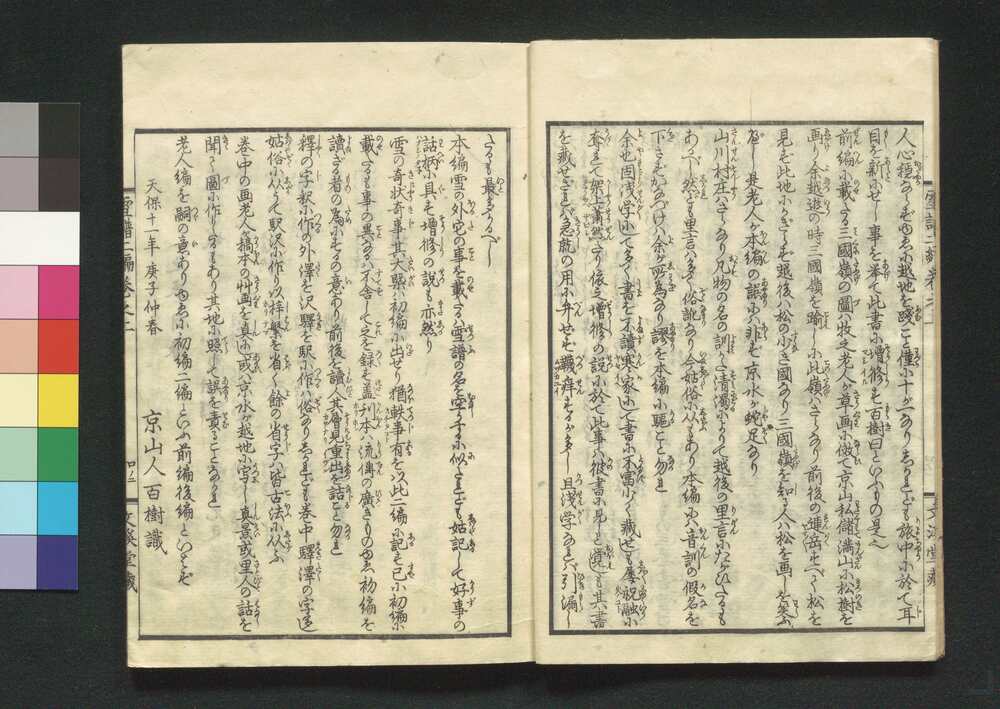 人心穏ならずゆゑに越地を踐こと僅に十が一なりしかれども旅中に於て耳
目を新にせし事を挙て此書に増修す百樹曰といふもの是也
前編に載たる三國嶺の圖は牧之老人が草画に傚て京山私儲満山に松樹を
画り余越遊の時三國嶺を踰しに此嶺はさらなり前後の連岳すべて松を
見ず此地にかぎらず越後は松の少き國なり三國嶺を知る人は松を画しを笑ふ
べし是老人が本編の誤にあらず京水が蛇足なり
山川村庄はさらなり凡物の名の訓かた清濁によりて越後の里言にたがひたるも
あるべし然ども里言は多く俗訛なり今姑俗にしたがふもあり本編には音訓の假名を
下さずかなづけは余が所為なり謬を本編に駆こと勿れ
余也固浅学にて多く書を不讀寒家にして書に不富少く蔵せしも屡祝融に
奪れて架上蕭然たり依之増修の説に於て此事は彼書に見しと覚しも其書
を蔵せざれば急就の用に弁ぜず韈癢するが多し且浅学なれば引漏し
たるも最多かるべし
本編雪の外它の事を載たるは雪譜の名を空するに似たれども姑記して好事の
話柄に具す増修の説も亦然り
雪の奇状奇事其大概は初編に出せり猶軼事有を以此二編に記す已に初編に
載たるも事の異なるは不舎して之を録す盖刊本は流傳の廣きものゆゑ初編を
讀ざる者の為にするの意あり前後を讀人其層見重出を詰こと勿れ
釋の字釈に作の外澤を沢驛を駅に作は俗なりしかれども巻中驛澤の字多し
姑俗にしたがひて駅沢に作り以梓繁を省く餘の省字は皆古法にしたがふ
巻中の画老人稿本の艸画を真にし或は京水が越地に写し真景或里人の話を
聞て圖に作りたるもあり其地に照して誤を責ることなかれ
老人編を嗣の意ありゆゑに初編二編といふ前編後編といはず
天保十一年庚子仲春
京山人百樹識
雪譜二編巻之一
文溪堂藏